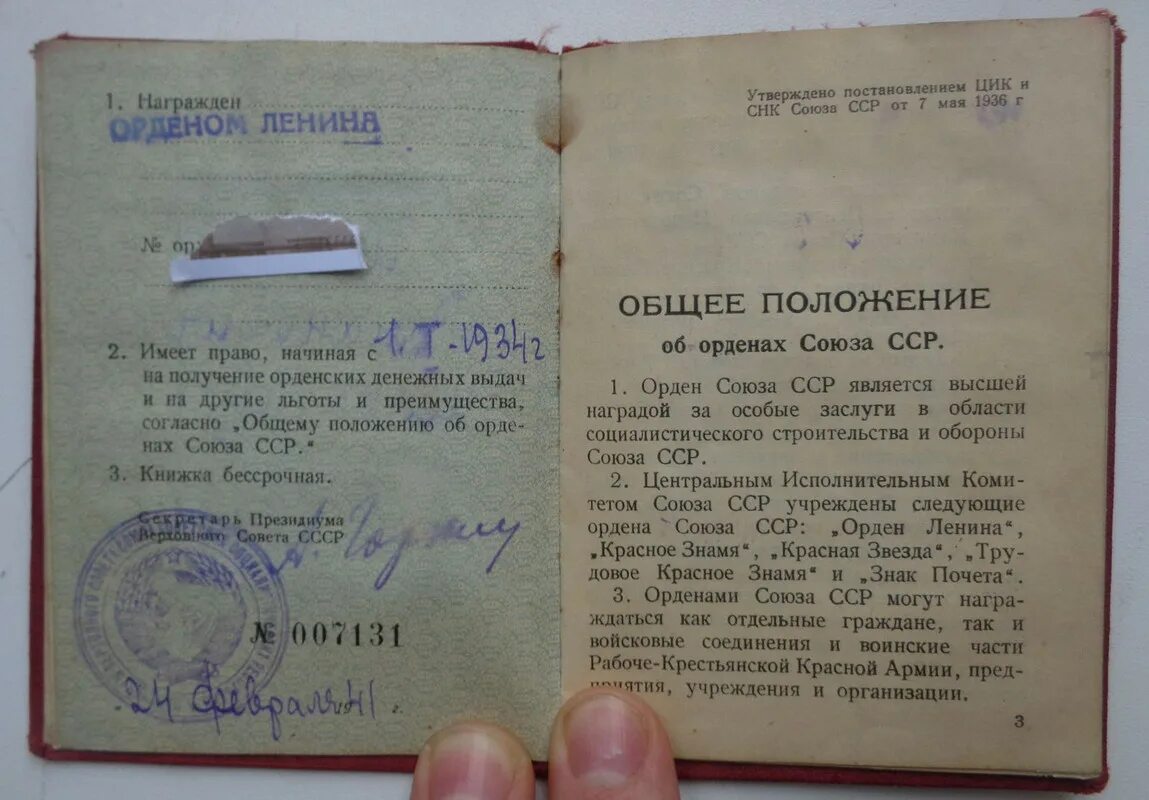 1. Награжден
ОРДЕНОМ ЛЕНИНА
№ ор
2. Имеет право, начиная с 1.I-1934 г
на получение орденских денежных выдач
и на другие льготы и преимущества,
согласно „Общему положению об орде-
нах Союза ССР.“
3. Книжка бессрочная.
Секретарь Президиума
Верховного Совета СССР
А. Горкин
№ 007131
24 февраля 1941 г.
Утверждено постановлением ЦИК и
СНК Союза ССР от 7 мая 1936 г
ОБЩЕЕ ПОЛОЖЕНИЕ
об орденах Союза ССР.
1. Орден Союза ССР является высшей
наградой за особые заслуги в области
социалистического строительства и обороны
Союза ССР.
2. Центральным Исполнительным Коми-
тетом Союза ССР учреждены следующие
ордена Союза ССР: „Орден Ленина“,
„Красное Знамя“, „Красная Звезда“, „Тру-
довое Красное Знамя“ и „Знак Почета“.
3. Орденами Союза ССР могут награ-
ждаться как отдельные граждане, так и
войсковые соединения и воинские части
Рабоче-Крестьянской Красной Армии, пред-
приятия, учреждения и организации.
3